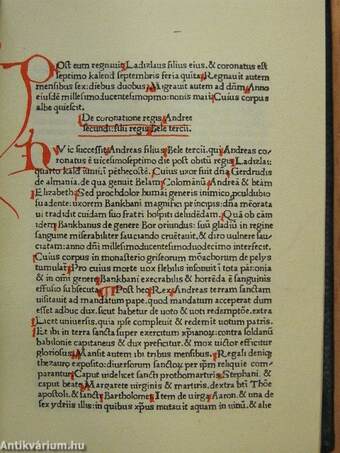 Post eum regnauit Ladizlaus filius eius, & coronatus est
septimo kalend septembris feria quita. Regnauit autem
mensibus sex: diebus duobus. Migrauit autem ad dñm. Anno
eiusdẽ millesimo.ducentesimoqmo: nonis maii. Cuius corpus
albe quiescit.
De coronatione regis Andree
secundi: filii regis Bele tercii.
Huic successit Andreas filius Bele tercii. qui Andreas co-
ronatus ẽ uicesimonono die post obitũ regis Ladizlai:
quarto kalend iunii ĩ pẽthecoste. Cuius uxor fuit dña Gerdrudis
de almania. de qua genuit Belam Colomanũ Andreã & btãm
Elizabeth. Sed prochdolor humani generis inimico, procudubio
suadente. uxorem Bankbani magnifici principis: dña memorata
ui tradidit cuidam suo fratri hospiti deludẽdam. Quã ob cãm
idem Bankbanus de genere Bor oriundus: suũ gladiũ in regine
sanguine miserabiliter sauciando cruẽtauit. & diro uulnere sau-
ciatam: anno dñi millesimoducentesimoduodecimo interfecit.
Cuius corpus in monasterio griseorum mõachorum de pelys
tumulat. Pro cuius morte uox flebilis infonuit i tota pãnonia
& in omni genere Bankbani execrabilis & horrẽda ẽ sanguinis
effusio subsecuta. Post hec Rex Andreas terram sanctam
uisitauit ad mandatum pape. quod mandatum acceperat dum
esset adhuc dux. sicut habetur de uoto & uoti redemptione. extra
Licet uniuersis. quia ipse compleuit & redemit uotum patris.
Et ibi in terra sancta super exercitum xp̃ianoꝝ contra soldanũ
babilonie capitaneus & dux preficitur. & mox uictor efficitur
gloriosus. Mansit autem ibi tribus mensibus. Regali denique
thezauro exposito: diuersorum sanctoꝝ ac per ipm reliquie compa-
rantur. Caput uidelicet sancti prothomartiris Stephani. &
caput beate Margarete uirginis & martiris. dextra bti Thõe
apostoli. & sancti Bartholomei. Item de uirga Aaron. & una de
sex ydriis illis: in quibus xp̃us mutauit aquam in uinũ. & alie
Antikvárium.hu